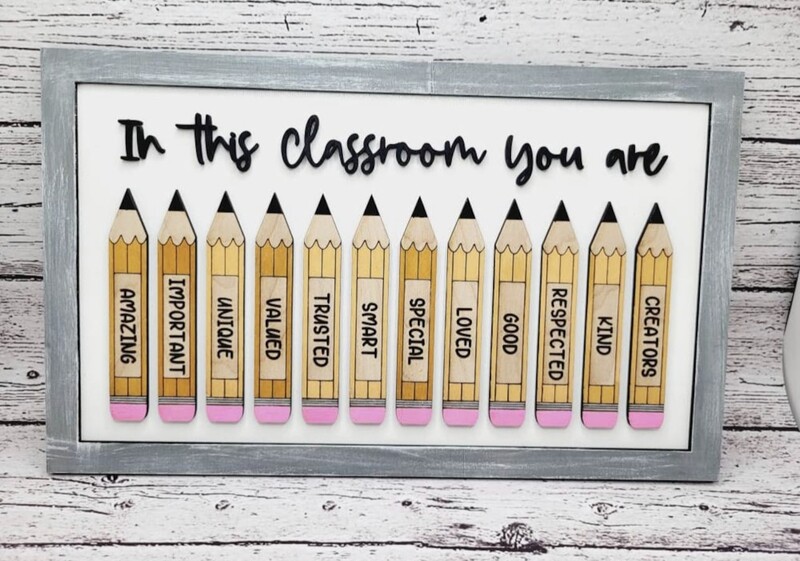 In this classroom you are
AMAZING
IMPORTANT
UNIQUE
VALUED
TRUSTED
SMART
SPECIAL
LOVED
GOOD
RESPECTED
KIND
CREATORS